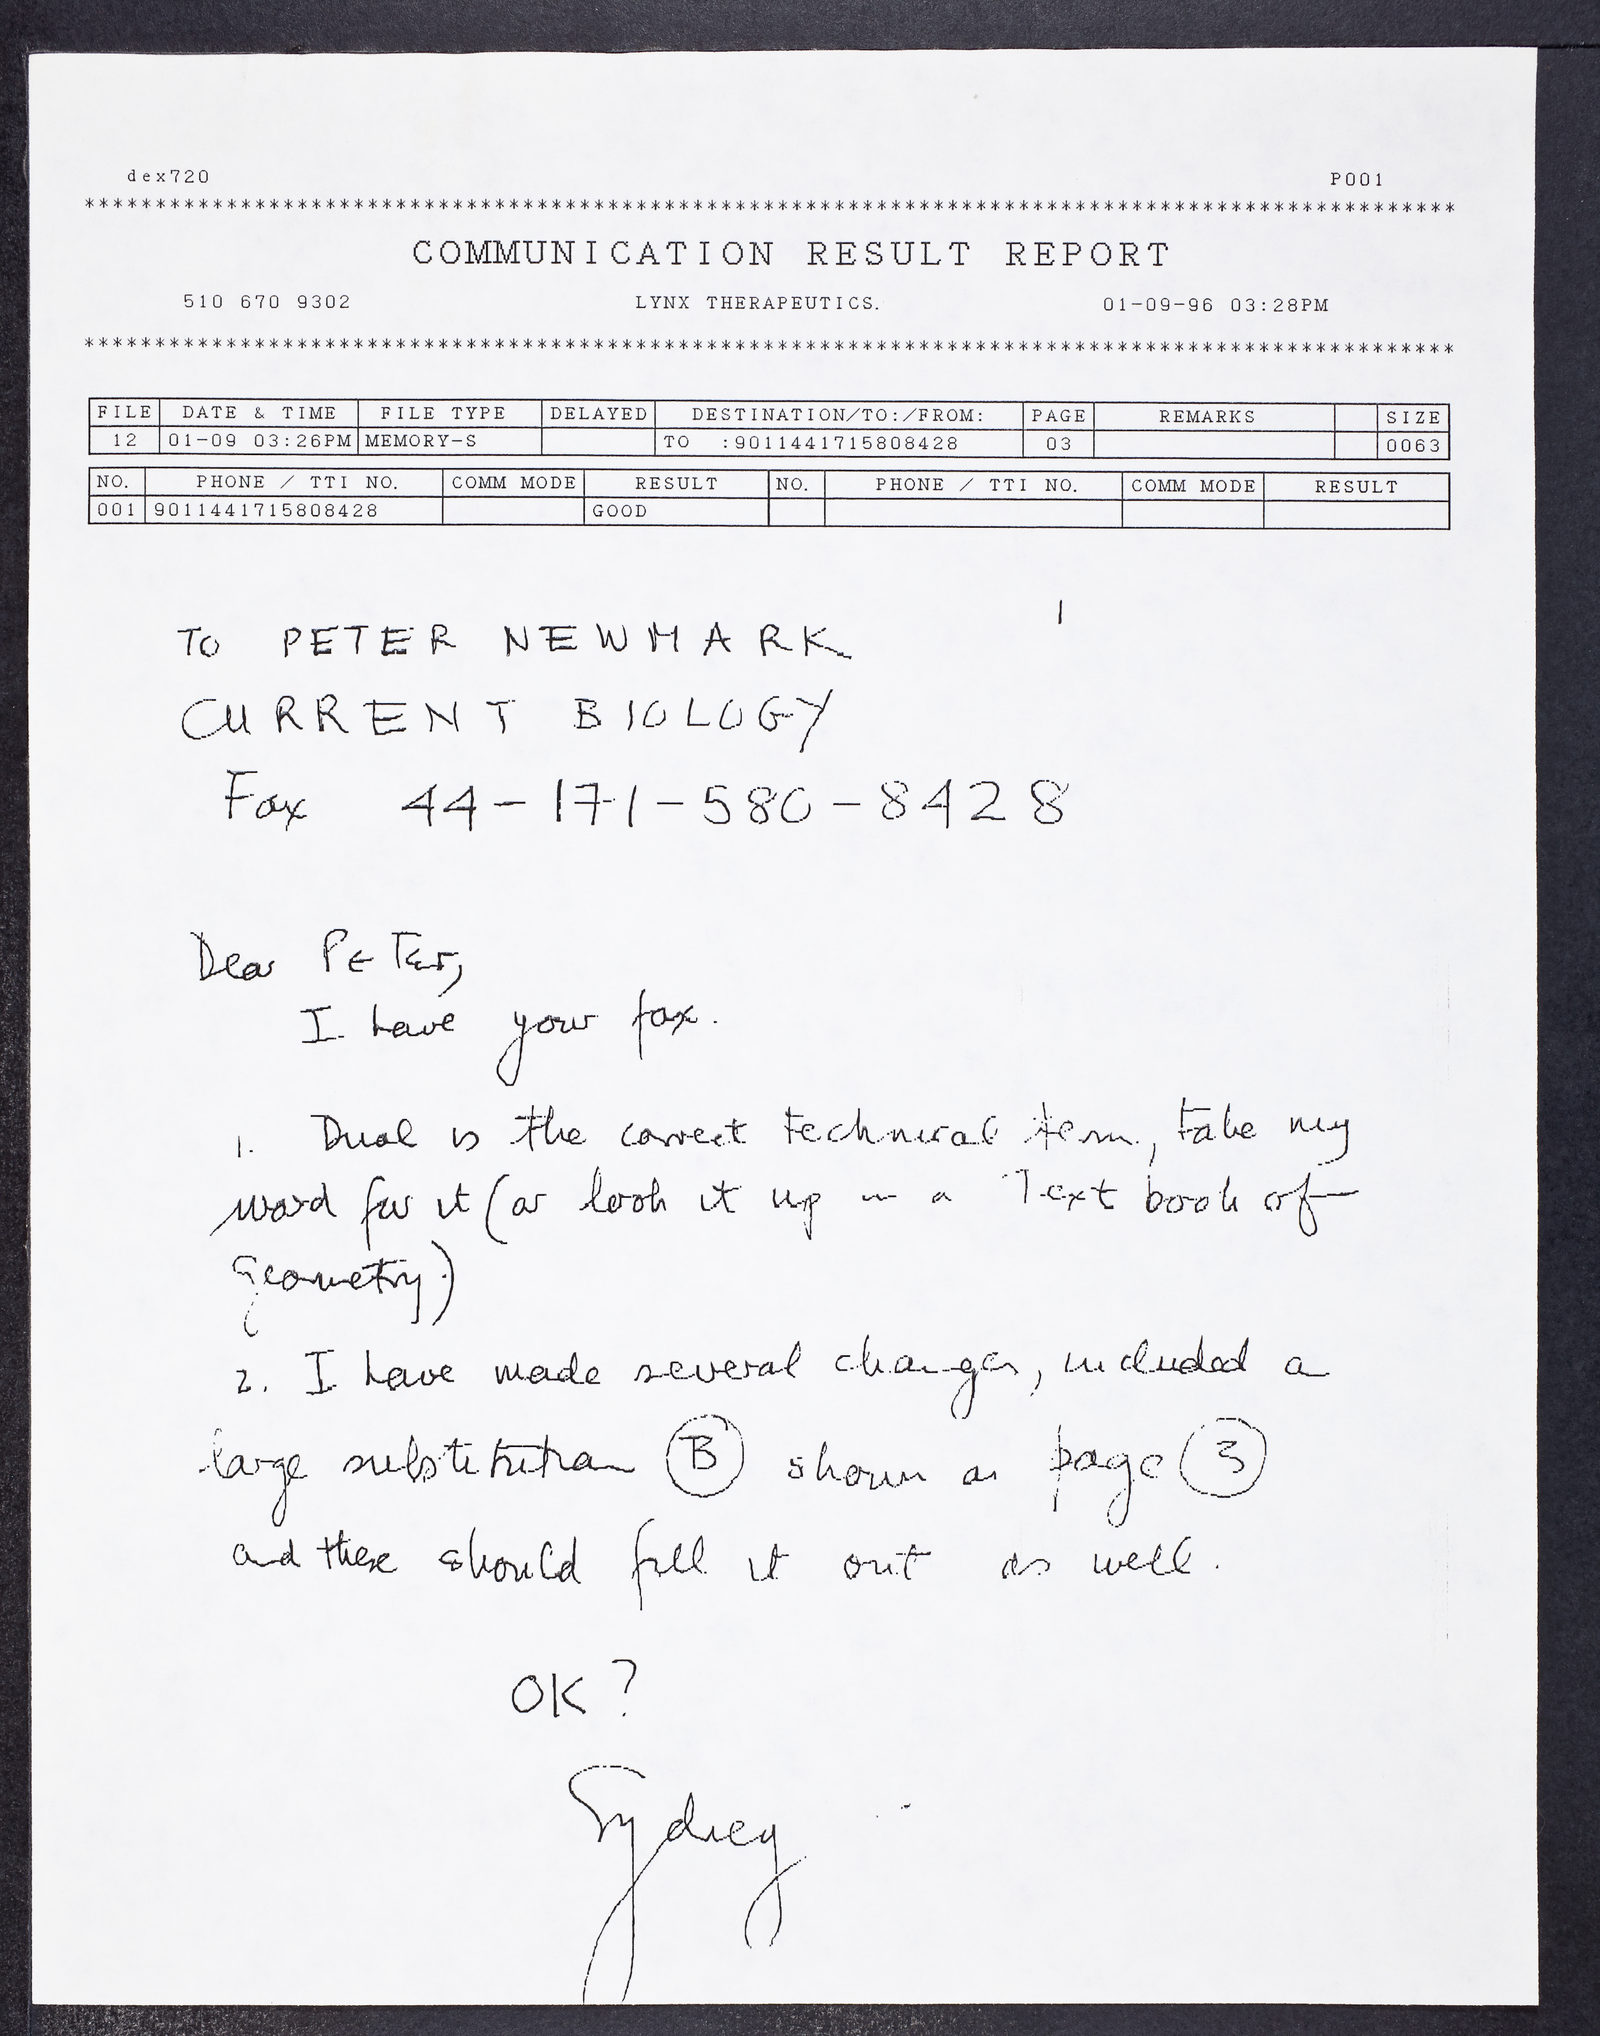 dex720 P001
****************************************************************************************************
COMMUNICATION RESULT REPORT
510 670 9302 LYNX THERAPEUTICS. 01-09-96 03:28PM
****************************************************************************************************
FILE DATE & TIME FILE TYPE DELAYED DESTINATION/TO:/FROM: PAGE REMARKS SIZE
12 01-09 03:26PM MEMORY-S TO :9011441715808428 03 0063
NO. PHONE / TTI NO. COMM MODE RESULT NO. PHONE / TTI NO. COMM MODE RESULT
001 9011441715808428 GOOD
1
TO PETER NEWMARK
CURRENT BIOLOGY
Fax 44-171-580-8428
Dear Peter,
I have your fax.
1. Dual is the correct technical term, take my
word for it (or look it up in a Text book of
geometry.)
2. I have made several changes, included a
large substitution B shown on page 3
and these should fill it out as well.
OK?
Sydney